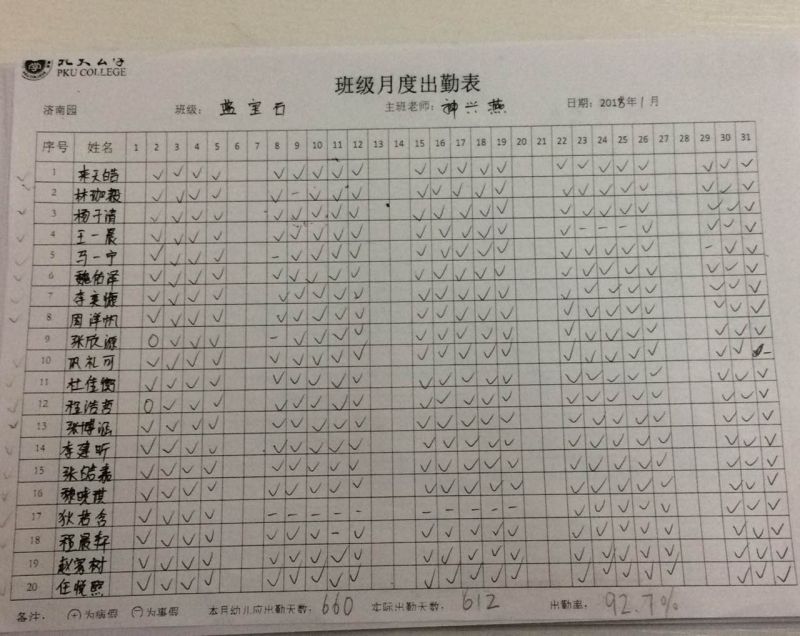 北大公学
PKU COLLEGE
班级月度出勤表
济南园 班级: 蓝宝石 主班老师: 神兴燕 日期: 2018年1月
序号 姓名 1 2 3 4 5 6 7 8 9 10 11 12 13 14 15 16 17 18 19 20 21 22 23 24 25 26 27 28 29 30 31
1 来天皓 ✓ ✓ ✓ ✓ ✓ ✓ ✓ ✓ ✓ ✓ ✓ ✓ ✓ ✓ ✓ ✓ ✓ ✓ ✓ ✓ ✓ ✓
2 林珈毅 ✓ ✓ ✓ ✓ ✓ - ✓ ✓ ✓ ✓ ✓ ✓ ✓ ✓ ✓ ✓ ✓ ✓ ✓ ✓ ✓ ✓
3 杨子清 ✓ ✓ ✓ ✓ ✓ ✓ ✓ ✓ ✓ ✓ ✓ ✓ ✓ ✓ ✓ ✓ ✓ ✓ ✓ ✓ ✓ ✓
4 王一晨 ✓ ✓ ✓ ✓ ✓ ✓ ✓ ✓ ✓ ✓ ✓ ✓ ✓ ✓ ✓ - - - ✓ ✓ ✓ ✓
5 马一宁 ✓ ✓ ✓ ✓ - ✓ ✓ ✓ ✓ ✓ ✓ ✓ ✓ ✓ ✓ ✓ ✓ ✓ ✓ - ✓ ✓
6 魏佑泽 ✓ ✓ ✓ ✓ ✓ ✓ ✓ ✓ ✓ ✓ ✓ ✓ ✓ ✓ ✓ ✓ ✓ ✓ ✓ ✓ ✓ ✓
7 李奕 ✓ ✓ ✓ ✓ ✓ ✓ ✓ ✓ ✓ ✓ ✓ ✓ ✓ ✓ ✓ ✓ ✓ ✓ ✓ ✓ ✓ ✓
8 周洋帆 ✓ ✓ ✓ ✓ ✓ ✓ ✓ ✓ ✓ ✓ ✓ ✓ ✓ ✓ ✓ ✓ ✓ ✓ ✓ ✓ ✓ ✓
9 张欣源 O ✓ ✓ ✓ - ✓ ✓ ✓ ✓ ✓ ✓ ✓ ✓ ✓ ✓ ✓ ✓ ✓ ✓ ✓ ✓ ✓
10 巩礼可 ✓ ✓ ✓ ✓ ✓ ✓ ✓ ✓ ✓ ✓ ✓ ✓ ✓ ✓ ✓ ✓ ✓ ✓ ✓ ✓ ✓ -
11 杜佳衡 ✓ ✓ ✓ ✓ ✓ ✓ ✓ ✓ ✓ ✓ ✓ ✓ ✓ ✓ ✓ ✓ ✓ ✓ ✓ ✓ ✓ ✓
12 程浩哲 O ✓ ✓ ✓ ✓ ✓ ✓ ✓ ✓ ✓ ✓ ✓ ✓ ✓ ✓ ✓ ✓ ✓ ✓ ✓ ✓ ✓
13 张博涵 ✓ ✓ ✓ ✓ ✓ ✓ ✓ ✓ ✓ ✓ ✓ ✓ ✓ ✓ ✓ ✓ ✓ ✓ ✓ ✓ ✓ ✓
14 李建昕 ✓ ✓ ✓ ✓ ✓ ✓ ✓ ✓ ✓ ✓ ✓ ✓ ✓ ✓ ✓ ✓ ✓ ✓ ✓ ✓ ✓ ✓
15 张皓嘉 ✓ ✓ ✓ ✓ ✓ ✓ ✓ ✓ ✓ ✓ ✓ ✓ ✓ ✓ ✓ ✓ ✓ ✓ ✓ ✓ ✓ ✓
16 魏晓琪 ✓ ✓ ✓ ✓ ✓ ✓ ✓ ✓ ✓ ✓ ✓ ✓ ✓ ✓ ✓ ✓ ✓ ✓ ✓ ✓ ✓ ✓
17 狄若含 ✓ ✓ ✓ ✓ - - - - - - - - - - ✓ ✓ ✓ ✓ ✓ ✓ ✓
18 程晨轩 ✓ ✓ ✓ ✓ ✓ ✓ ✓ - ✓ ✓ ✓ ✓ ✓ ✓ ✓ ✓ ✓ ✓ ✓ ✓ ✓ ✓
19 赵家树 ✓ ✓ ✓ ✓ ✓ ✓ ✓ ✓ ✓ ✓ ✓ ✓ ✓ ✓ ✓ ✓ ✓ ✓ ✓ ✓ ✓ ✓
20 任悦熙 ✓ ✓ ✓ ✓ ✓ ✓ ✓ ✓ ✓ ✓ ✓ ✓ ✓ ✓ ✓ ✓ ✓ ✓ ✓ ✓ ✓ ✓
备注: ⊕为病假 ⊖为事假 本月幼儿应出勤天数: 660 实际出勤天数: 612 出勤率: 92.7%